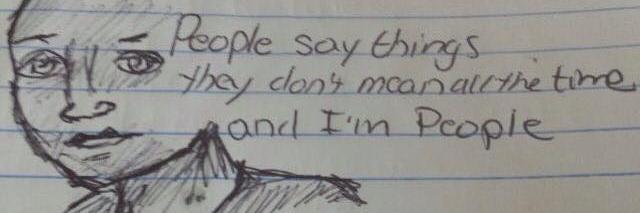 People say things
they don't mean all the time
and I'm People